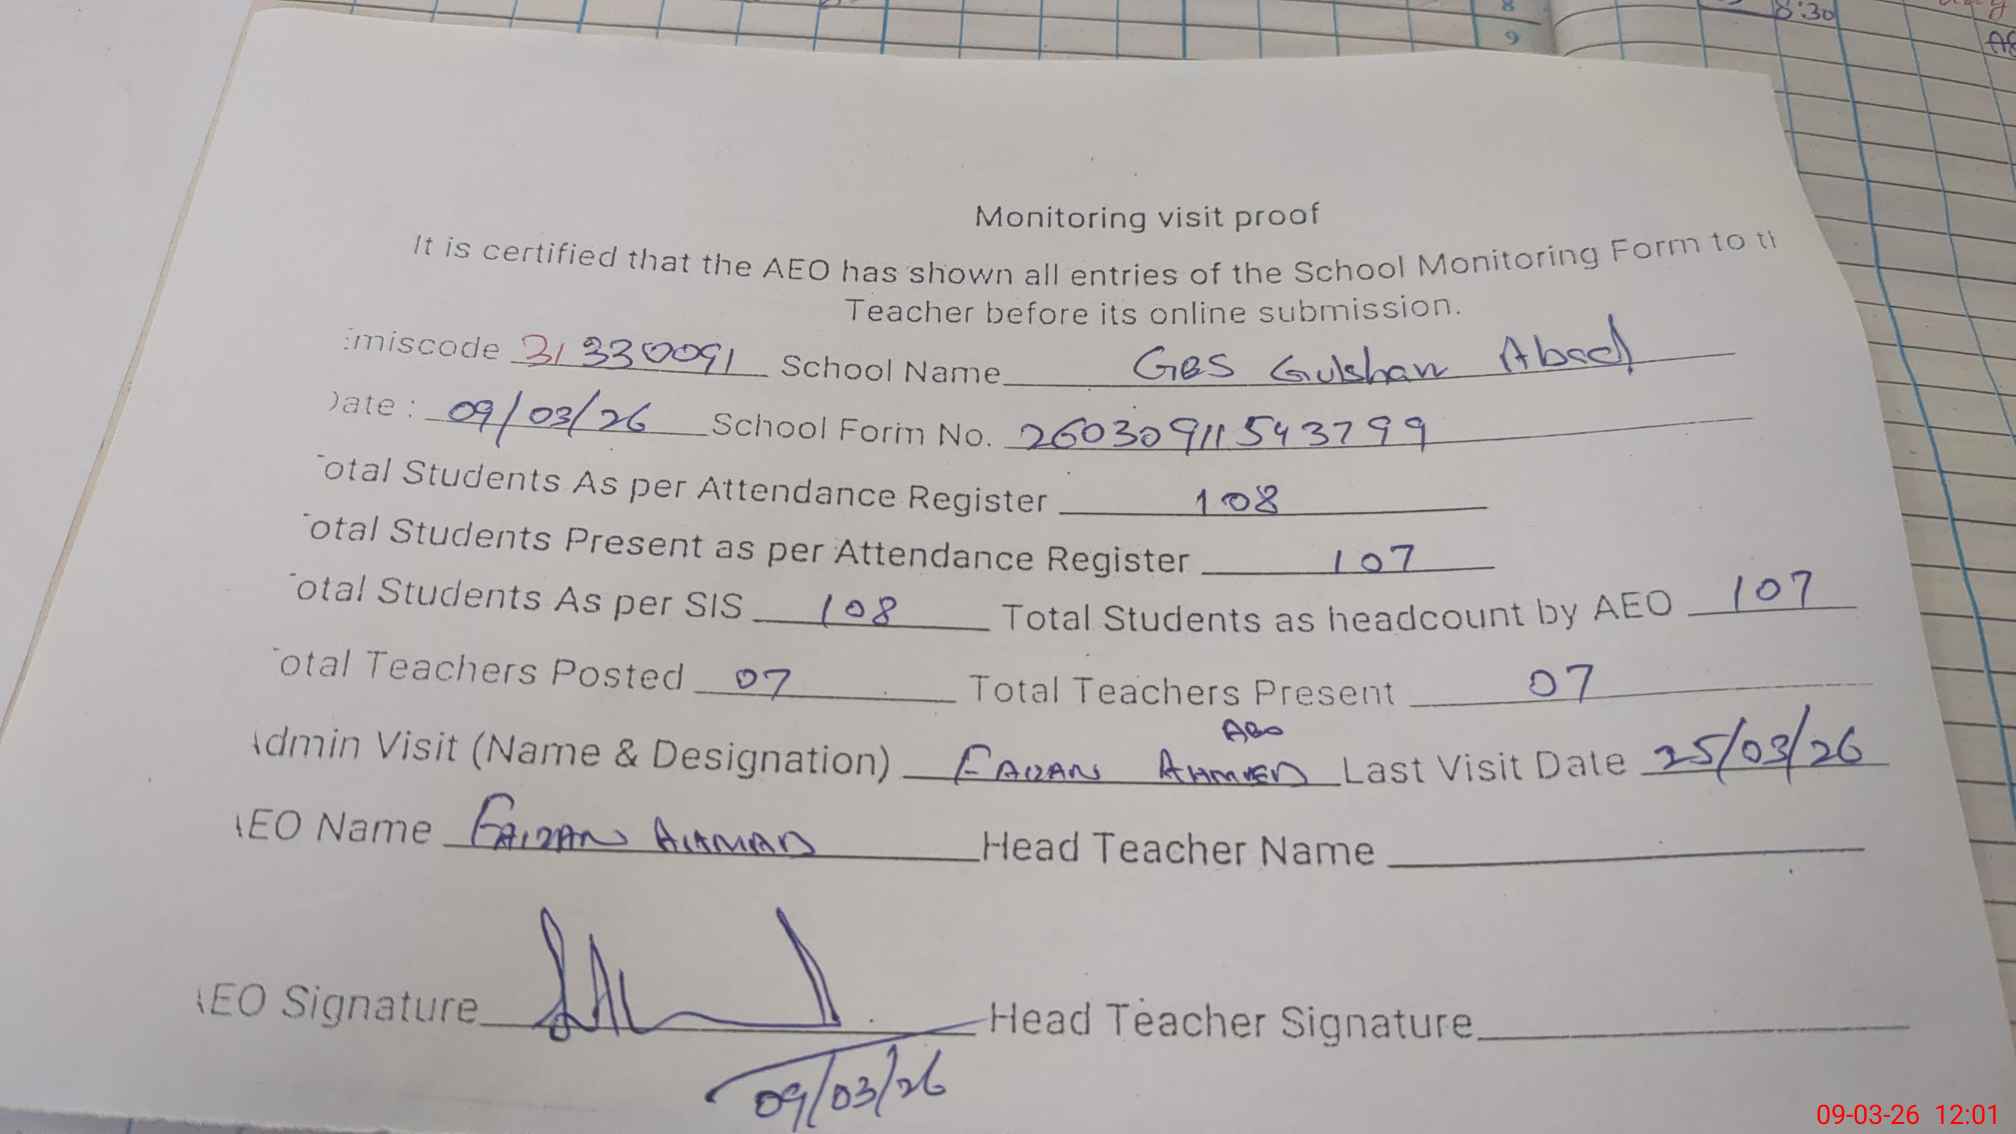 8
9
8:30
Monitoring visit proof
It is certified that the AEO has shown all entries of the School Monitoring Form to t
Teacher before its online submission.
miscode 31330091 School Name GBS Gulshan Abad
ate : 09/03/26 School Form No. 26030911543799
otal Students As per Attendance Register 108
otal Students Present as per Attendance Register 107
otal Students As per SIS 108 Total Students as headcount by AEO 107
otal Teachers Posted 07 Total Teachers Present 07
AEO
dmin Visit (Name & Designation) FAIZAN AHMED Last Visit Date 25/03/26
EO Name FAIZAN AHMAD Head Teacher Name
EO Signature Head Teacher Signature
09/03/26
09-03-26 12:01